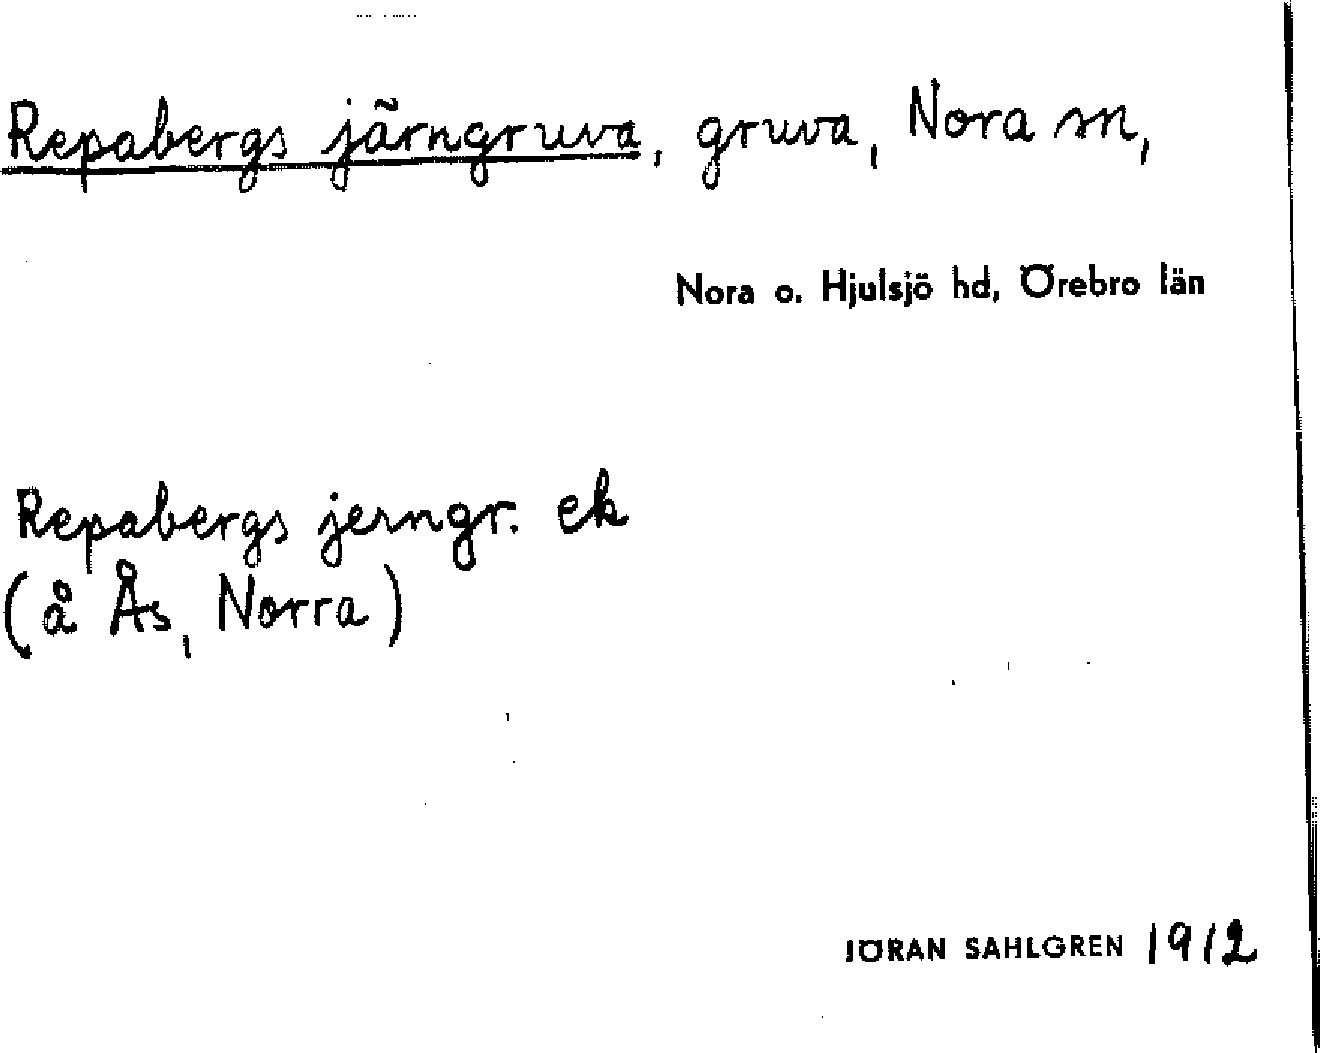 Repabergs järngruva, gruva, Nora sn,
Nora o. Hjulsjö hd, Örebro län
Repabergs jerngr. ek
(å Ås, Norra)
JÖRAN SAHLGREN 1912